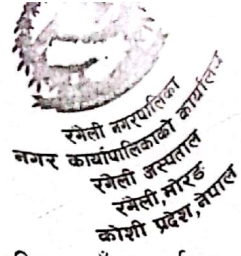 रंगेली नगरपालिका
नगर कार्यापालिकाको कार्यालय
रंगेली अस्पताल
रंगेली,मोरङ
कोशी प्रदेश,नेपाल